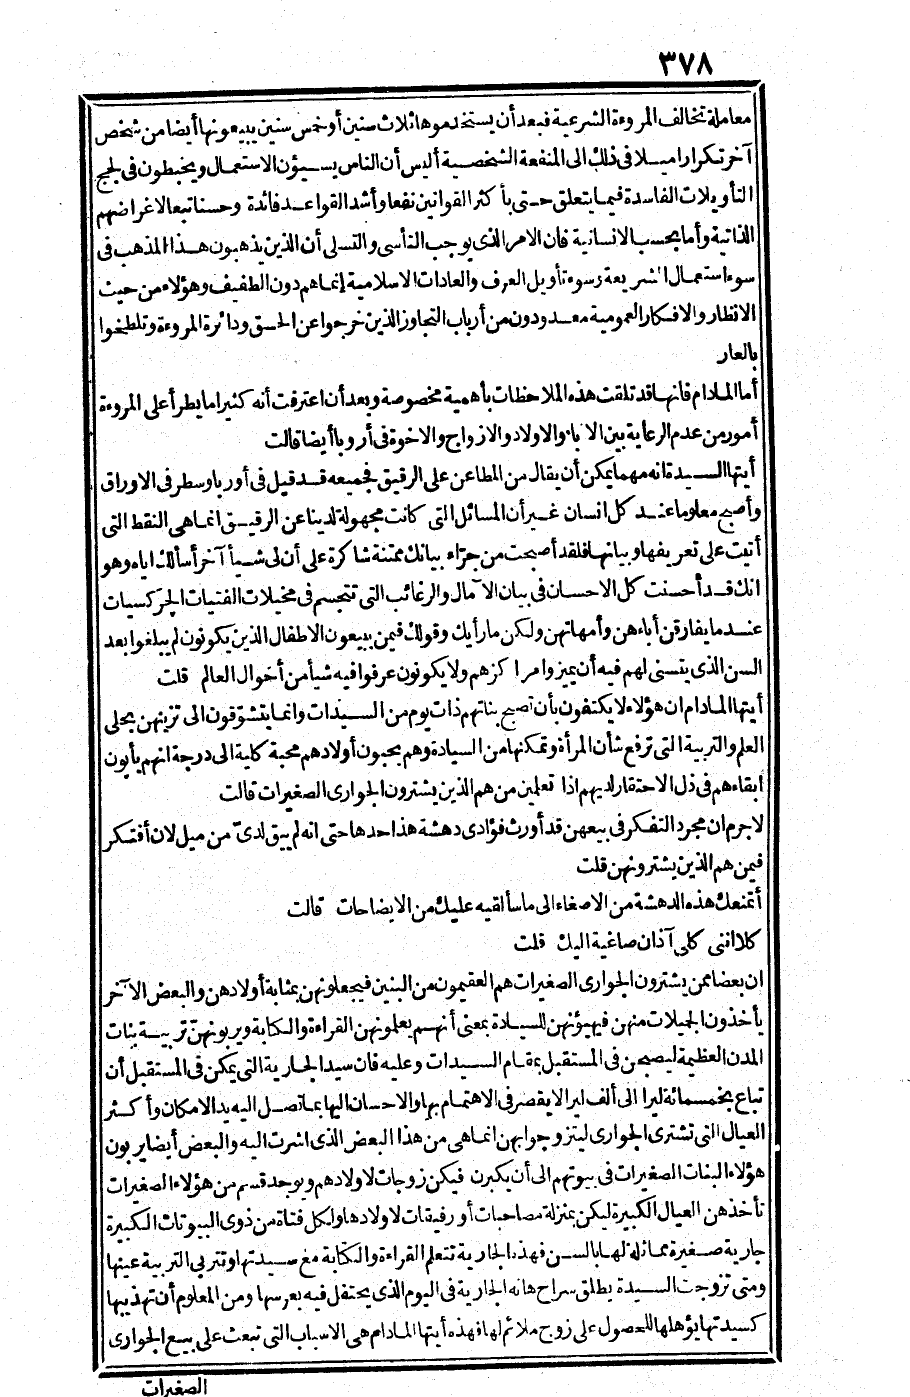 ٣٧٨
معاملة تخالف المروءة الشرعية فبعد أن يستخدموها ثلاث سنين أو خمس سنين يبيعونها أيضا من شخص
آخر تكرارا ميلا في ذلك الى المنفعة الشخصية أليس أن الناس يسيؤن الاستعمال ويخبطون في لجج
التأويلات الفاسدة فيما يتعلق حتى بأكثر القوانين نفعا وأشد القواعد فائدة وحسنا تبعا لاغراضهم
الذاتية وأما بحسب الانسانية فان الامر الذي يوجب التأسى والتسلى أن الذين يذهبون هذا المذهب في
سوء استعمال الشريعة وسوء تأويل العرف والعادات الاسلامية إنما هم دون الطفيف وهؤلاء من حيث
الانظار والافكار العمومية معدودون من أرباب التجاوز الذين خرجوا عن الحق ودائرة المروءة وتلطخوا
بالعار
أما المادام فانها قد تلقت هذه الملاحظات بأهمية مخصوصة وبعد أن اعترفت أنه كثيرا ما يطرأ على المروءة
أمور من عدم الرعاية بين الآباء والاولاد والازواج والاخوة في أروبا أيضا قالت
أيتها السيدة انه مهما يمكن أن يقال من المطاعن على الرقيق فجميعه قد قيل في أوربا وسطر في الاوراق
وأصبح معلوما عند كل انسان غير أن المسائل التي كانت مجهولة لدينا عن الرقيق انما هي النقط التي
أتيت على تعريفها وبيانها فلقد أصبحت من جراء بيانك ممتنة شاكرة على أن لى شيأ آخر أسألك اياه وهو
انك قد أحسنت كل الاحسان في بيان الآمال والرغائب التي تتجسم في مخيلات الفتيات الجركسيات
عند ما يفارقن أباءهن وأمهاتهن ولكن ما رأيك وقولك فيمن يبيعون الاطفال الذين يكونون لم يبلغوا بعد
السن الذى يتسنى لهم فيه أن يميزوا مراكزهم ولا يكونون عرفوا فيه شيأ من أحوال العالم قلت
أيتها المادام ان هؤلاء لا يكتفون بأن تصبح بناتهم ذات يوم من السيدات وانما يتشوقون الى تزينهن بحلى
العلم والتربية التي ترفع شأن المرأة وتمكنها من السيادة وهم يحبون أولادهم محبة كلية الى درجة انهم يأبون
ابقاءهم في ذل الاحتقار لديهم اذا تعلمين من هم الذين يشترون الجوارى الصغيرات قالت
لا جرم ان مجرد التفكر في بيعهن قد أورث فؤادى دهشة هذا حدها حتى انه لم يبق لدىّ من ميل لان أفتكر
فيمن هم الذين يشترونهن قلت
أتمنعك هذه الدهشة من الاصغاء الى ما سألقيه عليك من الايضاحات قالت
كلا اننى كلى آذان صاغية اليك قلت
ان بعضا ممن يشترون الجوارى الصغيرات هم العقيمون من البنين فيجعلونهن بمثابة أولادهن والبعض الآخر
يأخذون الجميلات منهن فيهيؤنهن للسيادة بمعنى أنهم يعلمونهن القراءة والكتابة ويربونهنّ تربية بنات
المدن العظيمة ليصبحن في المستقبل بمقام السيدات وعليه فان سيد الجارية التي يمكن في المستقبل أن
تباع بخمسمائة ليرا الى ألف ليرا لا يقصر في الاهتمام بها والاحسان اليها بما تصل اليه يد الامكان وأكثر
العيال التي تشترى الجوارى ليتزوجوا بهن انما هي من هذا البعض الذى اشرت اليه والبعض أيضا يربون
هؤلاء البنات الصغيرات في بيوتهم الى أن يكبرن فيكن زوجات لاولادهم ويوجد قسم من هؤلاء الصغيرات
تأخذهن العيال الكبيرة ليكن بمنزلة مصاحبات أو رفيقات لاولادها ولكل فتاة من ذوى البيوتات الكبيرة
جارية صغيرة مماثلة لها بالسن فهذه الجارية تتعلم القراءة والكتابة مع سيدتها وتتربي التربية عينها
ومتى تزوجت السيدة يطلق سراح هاته الجارية في اليوم الذى يحتفل فيه بعرسها ومن المعلوم أن تهذيبها
كسيدتها يؤهلها للحصول على زوج ملائم لها فهذه أيتها المادام هي الاسباب التي تبعث على بيع الجوارى
الصغيرات